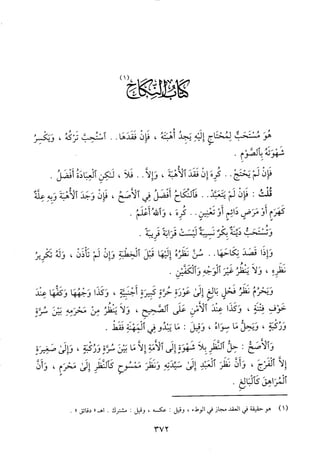 كِتَابُ النِّكَاحِ (١)
هُوَ مُسْتَحَبٌّ لِمُحْتَاجٍ إِلَيْهِ يَجِدُ أُهْبَتَهُ ، فَإِنْ فَقَدَهَا .. ٱسْتُحِبَّ تَرْكُهُ ، وَيَكْسِرُ
شَهْوَتَهُ بِالصَّوْمِ .
فَإِنْ لَمْ يَحْتَجْ .. كُرِهَ إِنْ فَقَدَ الأُهْبَةَ ، وَإِلاَّ .. فَلاَ ، لَكِنِ الْعِبَادَةُ أَفْضَلُ .
قُلْتُ : فَإِنْ لَمْ يَتَعَبَّدْ .. فَالنِّكَاحُ أَفْضَلُ فِي الأَصَحِّ ، فَإِنْ وَجَدَ الأُهْبَةَ وَبِهِ عِلَّةٌ
كَهَرَمٍ أَوْ مَرَضٍ دَائِمٍ أَوْ تَعْنِينٍ .. كُرِهَ ، وَاللهُ أَعْلَمُ .
وَيُسْتَحَبُّ دَيِّنَةٌ بِكْرٌ نَسِيبَةٌ لَيْسَتْ قَرَابَةً قَرِيبَةً .
وَإِذَا قَصَدَ نِكَاحَهَا .. سُنَّ نَظَرُهُ إِلَيْهَا قَبْلَ الْخِطْبَةِ وَإِنْ لَمْ تَأْذَنْ ، وَلَهُ تَكْرِيرُ
نَظَرِهِ ، وَلاَ يَنْظُرُ غَيْرَ الْوَجْهِ وَالْكَفَّيْنِ .
وَيَحْرُمُ نَظَرُ فَحْلٍ بَالِغٍ إِلَىٰ عَوْرَةِ حُرَّةٍ كَبِيرَةٍ أَجْنَبِيَّةٍ ، وَكَذَا وَجْهُهَا وَكَفُّهَا عِنْدَ
خَوْفِ فِتْنَةٍ ، وَكَذَا عِنْدَ الأَمْنِ عَلَى الصَّحِيحِ ، وَلاَ يَنْظُرُ مِنْ مَحْرَمِهِ بَيْنَ سُرَّةٍ
وَرُكْبَةٍ ، وَيَحِلُّ مَا سِوَاهُ ، وَقِيلَ : مَا يَبْدُو فِي الْمِهْنَةِ فَقَطْ .
وَالأَصَحُّ : حِلُّ النَّظَرِ بِلاَ شَهْوَةٍ إِلَى الأَمَةِ إِلاَّ مَا بَيْنَ سُرَّةٍ وَرُكْبَةٍ ، وَإِلَىٰ صَغِيرَةٍ
إِلاَّ الْفَرْجَ ، وَأَنَّ نَظَرَ الْعَبْدِ إِلَىٰ سَيِّدَتِهِ وَنَظَرَ مَمْسُوحٍ كَالنَّظَرِ إِلَىٰ مَحْرَمٍ ، وَأَنَّ
الْمُرَاهِقَ كَالْبَالِغِ .
(١) هو حقيقة في العقد مجاز في الوطء ، وقيل : عكسه ، وقيل : مشترك . اهـ « دقائق » .
٣٧٢